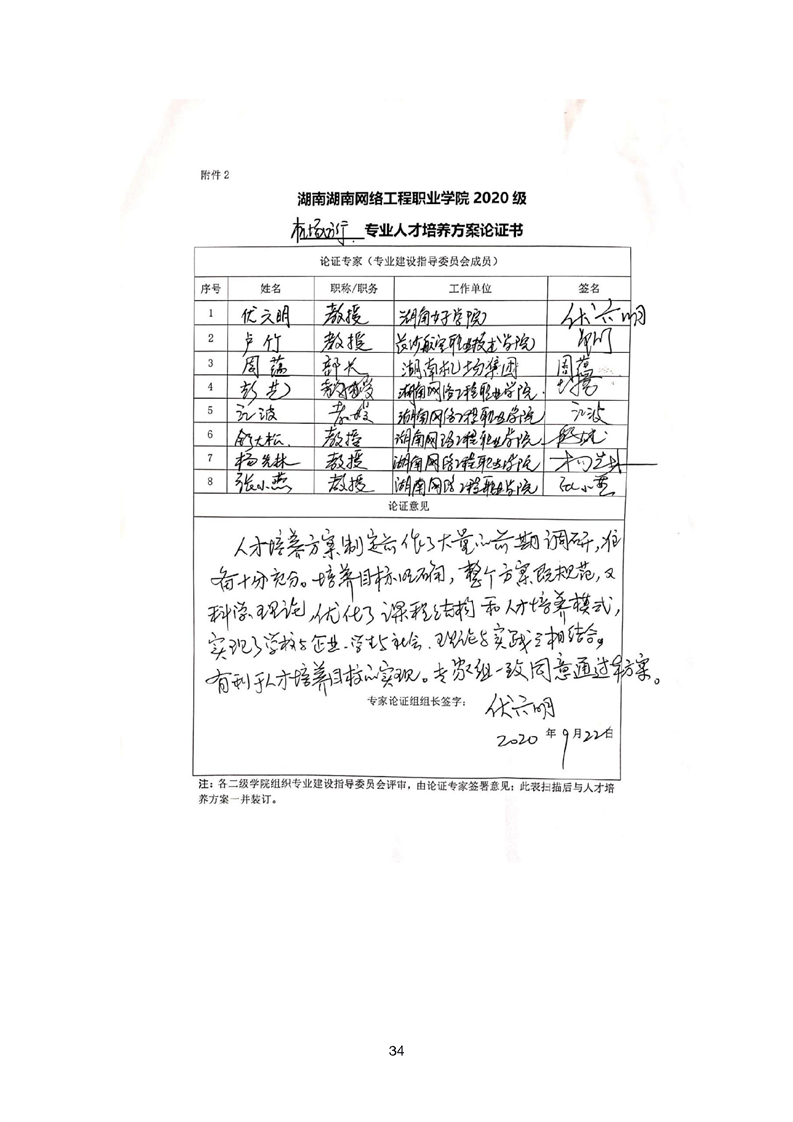 附件 2
湖南湖南网络工程职业学院 2020 级
专业人才培养方案论证书
论证专家（专业建设指导委员会成员）
序号 姓名 职称/职务 工作单位 签名
1 伏六明 教授 湖南女子学院 伏六明
2 卢竹 教授 长沙航空职业技术学院
3 周蕴 部长 湖南机场集团 周蕴
4 湖南网络工程职业学院
5 湖南网络工程职业学院
6 教授 湖南网络工程职业学院
7 杨先林 教授 湖南网络工程职业学院
8 张小燕 教授 湖南网络工程职业学院 张小燕
论证意见
人才培养方案制定前作了大量的前期调研，准
备十分充分。培养目标明确，整个方案既规范，又
科学理论，优化了课程结构和人才培养模式，
实现了学校与企业、学生与社会、理论与实践互相结合，
有利于人才培养目标的实现。专家组一致同意通过本方案。
专家论证组组长签字： 伏六明
2020 年 9 月 22 日
注：各二级学院组织专业建设指导委员会评审，由论证专家签署意见；此表扫描后与人才培
养方案一并装订。
34